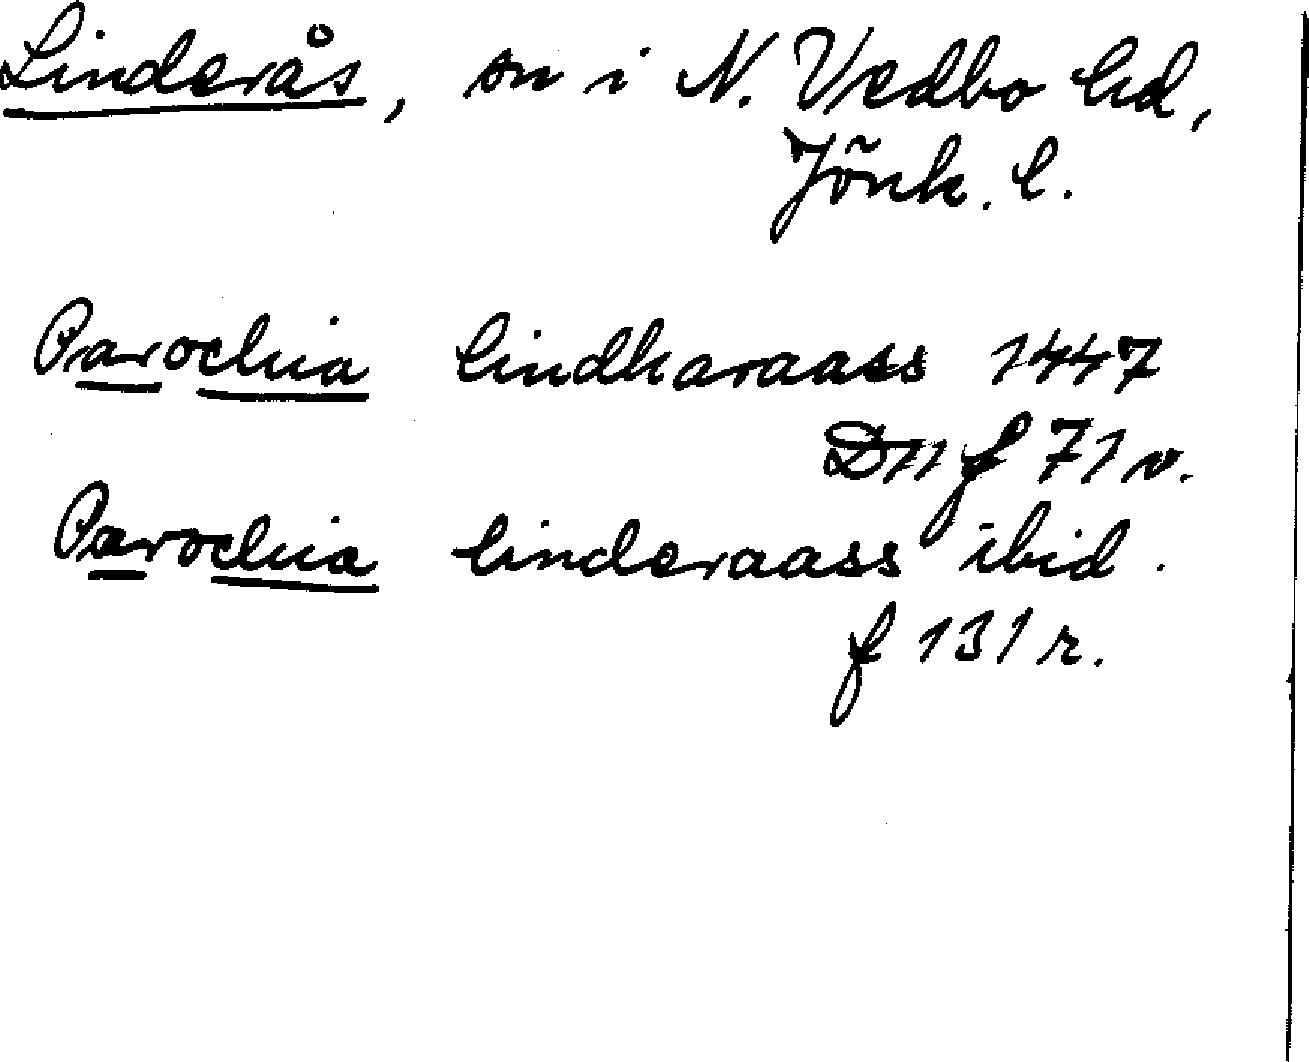 Linderås, sn i N. Vedbo hd,
Jönk. l.
Parochia lindharaass 1447
D11 f 71 v.
Parochia linderaass ibid.
f 131 r.